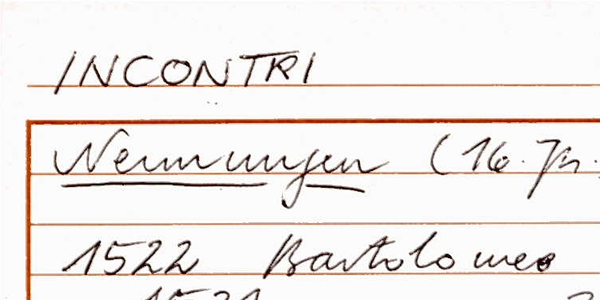 INCONTRI
Nennungen (16. Jh.
1522 Bartolomeo
1521